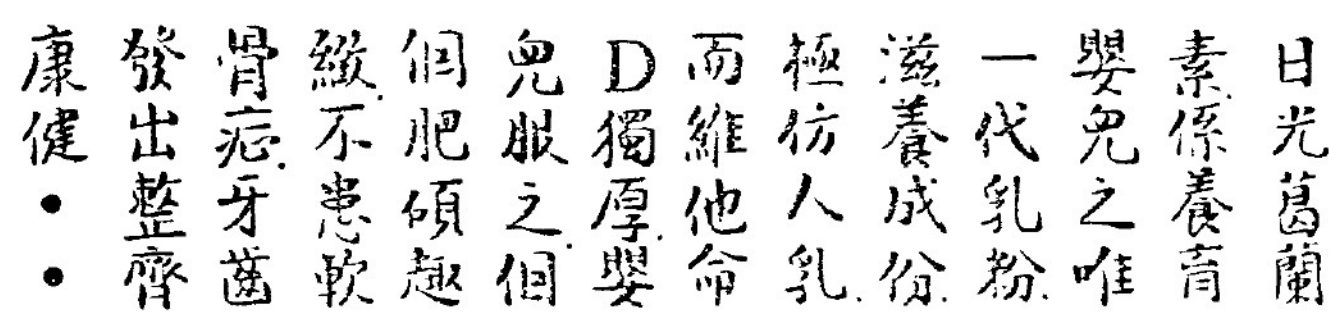 日光葛蘭
素.係養育
嬰兒之唯
一代乳粉.
滋養成份.
極仿人乳.
而維他命
D獨厚.嬰
兒服之.個
個肥碩趣
緻.不患軟
骨症.牙齒
發出整齊
康健••